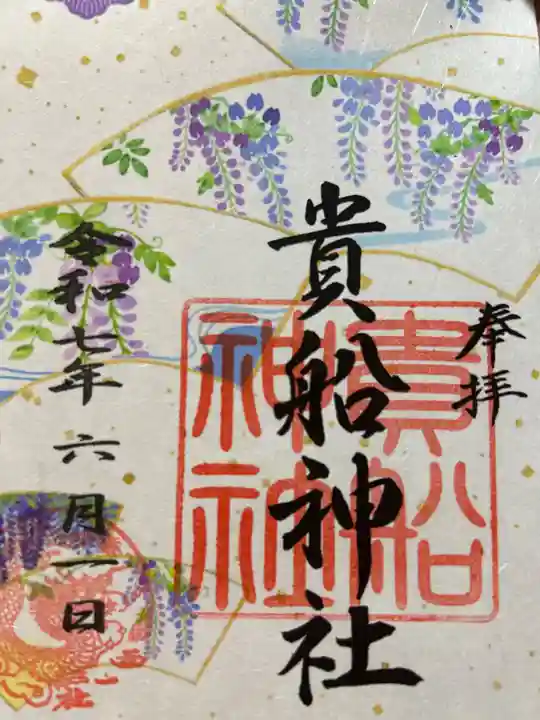 奉拝
貴船神社
貴船神社
令和七年六月一日
社